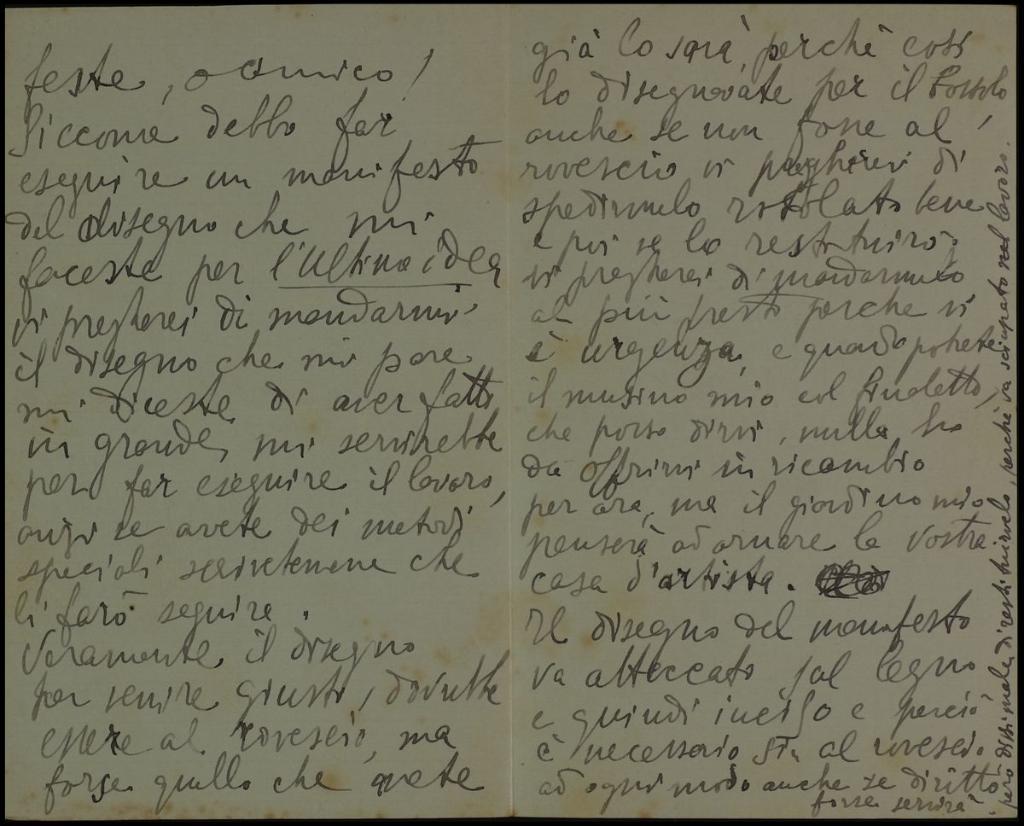 feste, o amico!
Siccome debbo far
eseguire un manifesto
del disegno che mi
faceste per l'Ultima idea
vi pregherei di mandarmi
il disegno che mi pare
mi diceste di aver fatto
in grande, mi servirebbe
per far eseguire il lavoro,
anzi se avete dei metodi
speciali scrivetemene che
li farò seguire.
Veramente il disegno
per venire giusto, dovrebbe
essere al rovescio, ma
forse quello che avete
già lo sarà, perchè così
lo disegnavate per il bossolo,
anche se non fosse al
rovescio vi pregherei di
spedirmelo rotolato bene
e poi ve lo restituirò;
vi pregherei di mandarmelo
al più presto perchè vi
è urgenza, e quando potrete
il musino mio col
che posso dirvi, nulla ho
da offrirvi in ricambio
per ora, ma il giardino mio
penserà ad ornare la vostra
casa d'artista.
Il disegno del manifesto
va attaccato sul legno
e quindi inciso e perciò
è necessario sia al rovescio
ad ogni modo anche se diritto
forse servirà
però dissi male di restituirvelo, perchè va sciupato nel lavoro.